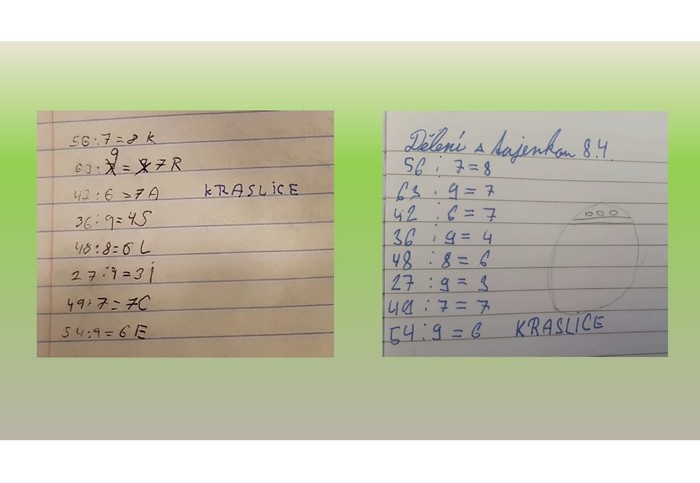 56:7=8 K
63:9=7 R
42:6=7A
KRASLiCE
36:9=4S
48:8=6 L
27:9=3 i
49:7=7C
54:9=6E
Dělení s tajenkou 8.4.
56 : 7=8
63 : 9=7
42 : 6=7
36 : 9=4
48 : 8=6
27 : 9=3
49 : 7=7
54:9=6 KRASLiCE